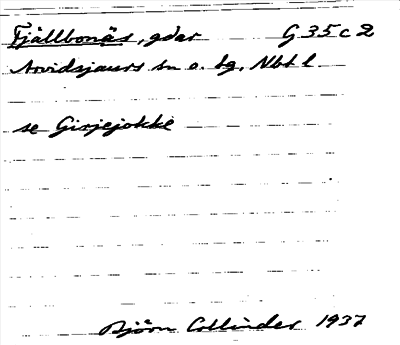 Fjällbonäs, gdar G 35 c 2
Arvidsjaurs sn o. tg, Nbtl
se Girjejokke
Björn Collinder 1937